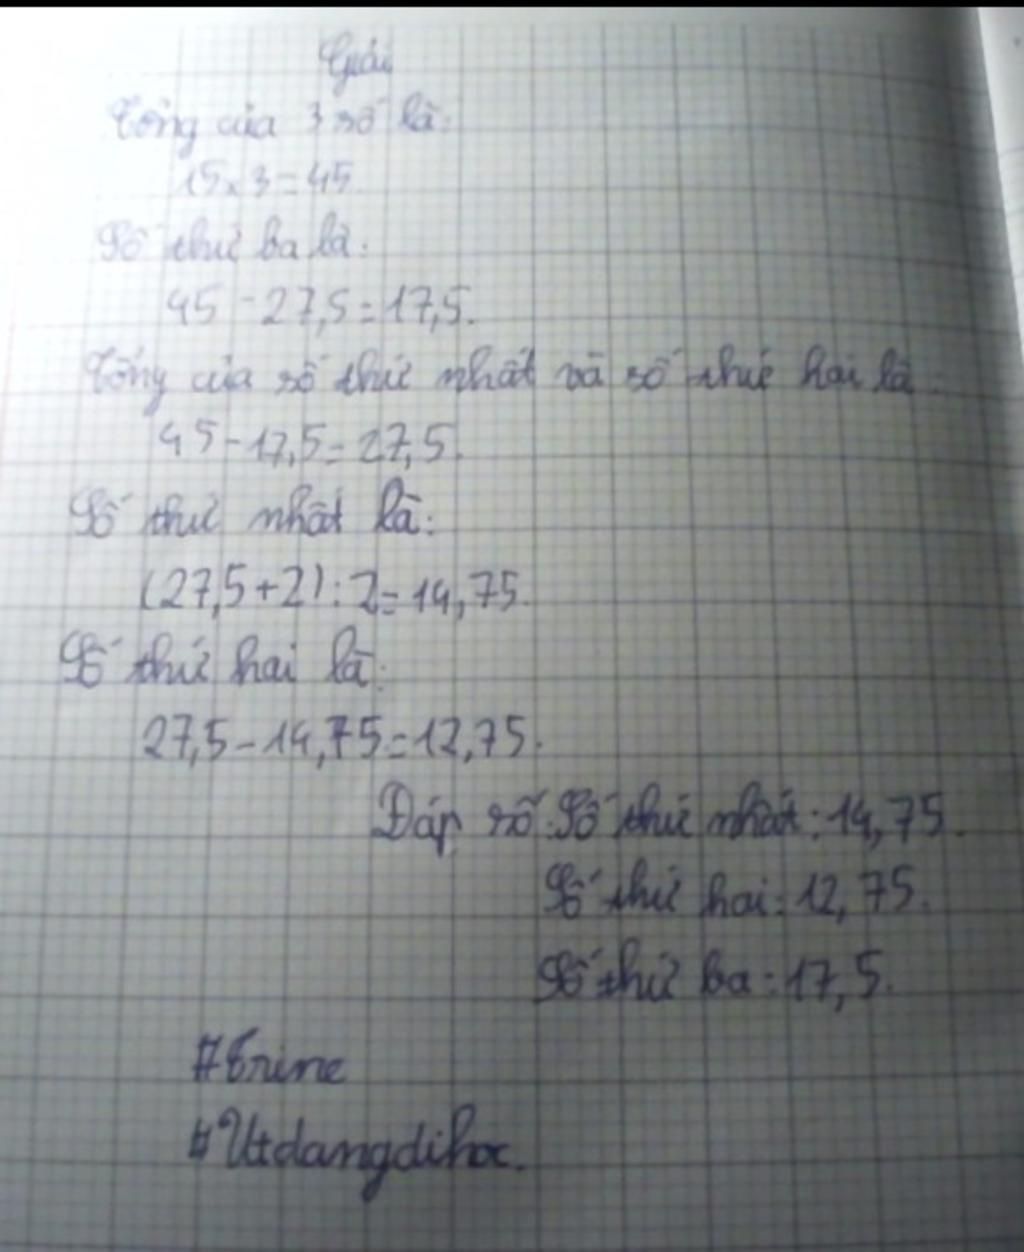 Giải
Tổng của 3 số là:
15 x 3 = 45
Số thứ ba là:
45 - 27,5 = 17,5.
Tổng của số thứ nhất và số thứ hai là:
45 - 17,5 = 27,5.
Số thứ nhất là:
(27,5 + 2) : 2 = 14,75.
Số thứ hai là:
27,5 - 14,75 = 12,75.
Đáp số: Số thứ nhất: 14,75.
Số thứ hai: 12,75.
Số thứ ba: 17,5.
#Utdangdihoc.